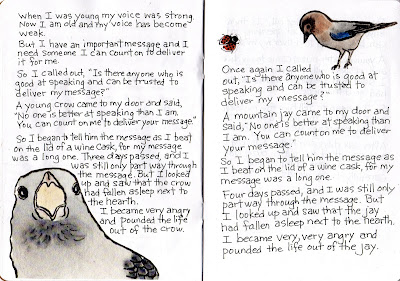 When I was young my voice was strong.
Now I am old and my voice has become
weak.
But I have an important message and I
need someone I can count on to deliver
it for me.
So I called out, "Is there anyone who is
good at speaking and can be trusted to
deliver my message?"
A young crow came to my door and said,
"No one is better at speaking than I am.
You can count on me to deliver your message."
So I began to tell him the message as I beat
on the lid of a wine cask, for my message
was a long one. Three days passed, and I
was still only part way through
the message. But I looked
up and saw that the crow
had fallen asleep next to
the hearth.
I became very angry
and pounded the life
out of the crow.
Once again I called
out, "Is there anyone who is good at
speaking and can be trusted to
deliver my message?"
A mountain jay came to my door and
said, "No one is better at speaking than
I am. You can count on me to deliver
your message."
So, I began to tell him the message as
I beat on the lid of a wine cask, for my
message was a long one.
Four days passed, and I was still only
part way through the message. But
I looked up and saw that the jay
had fallen asleep next to the hearth.
I became very, very angry and
pounded the life out of the jay.